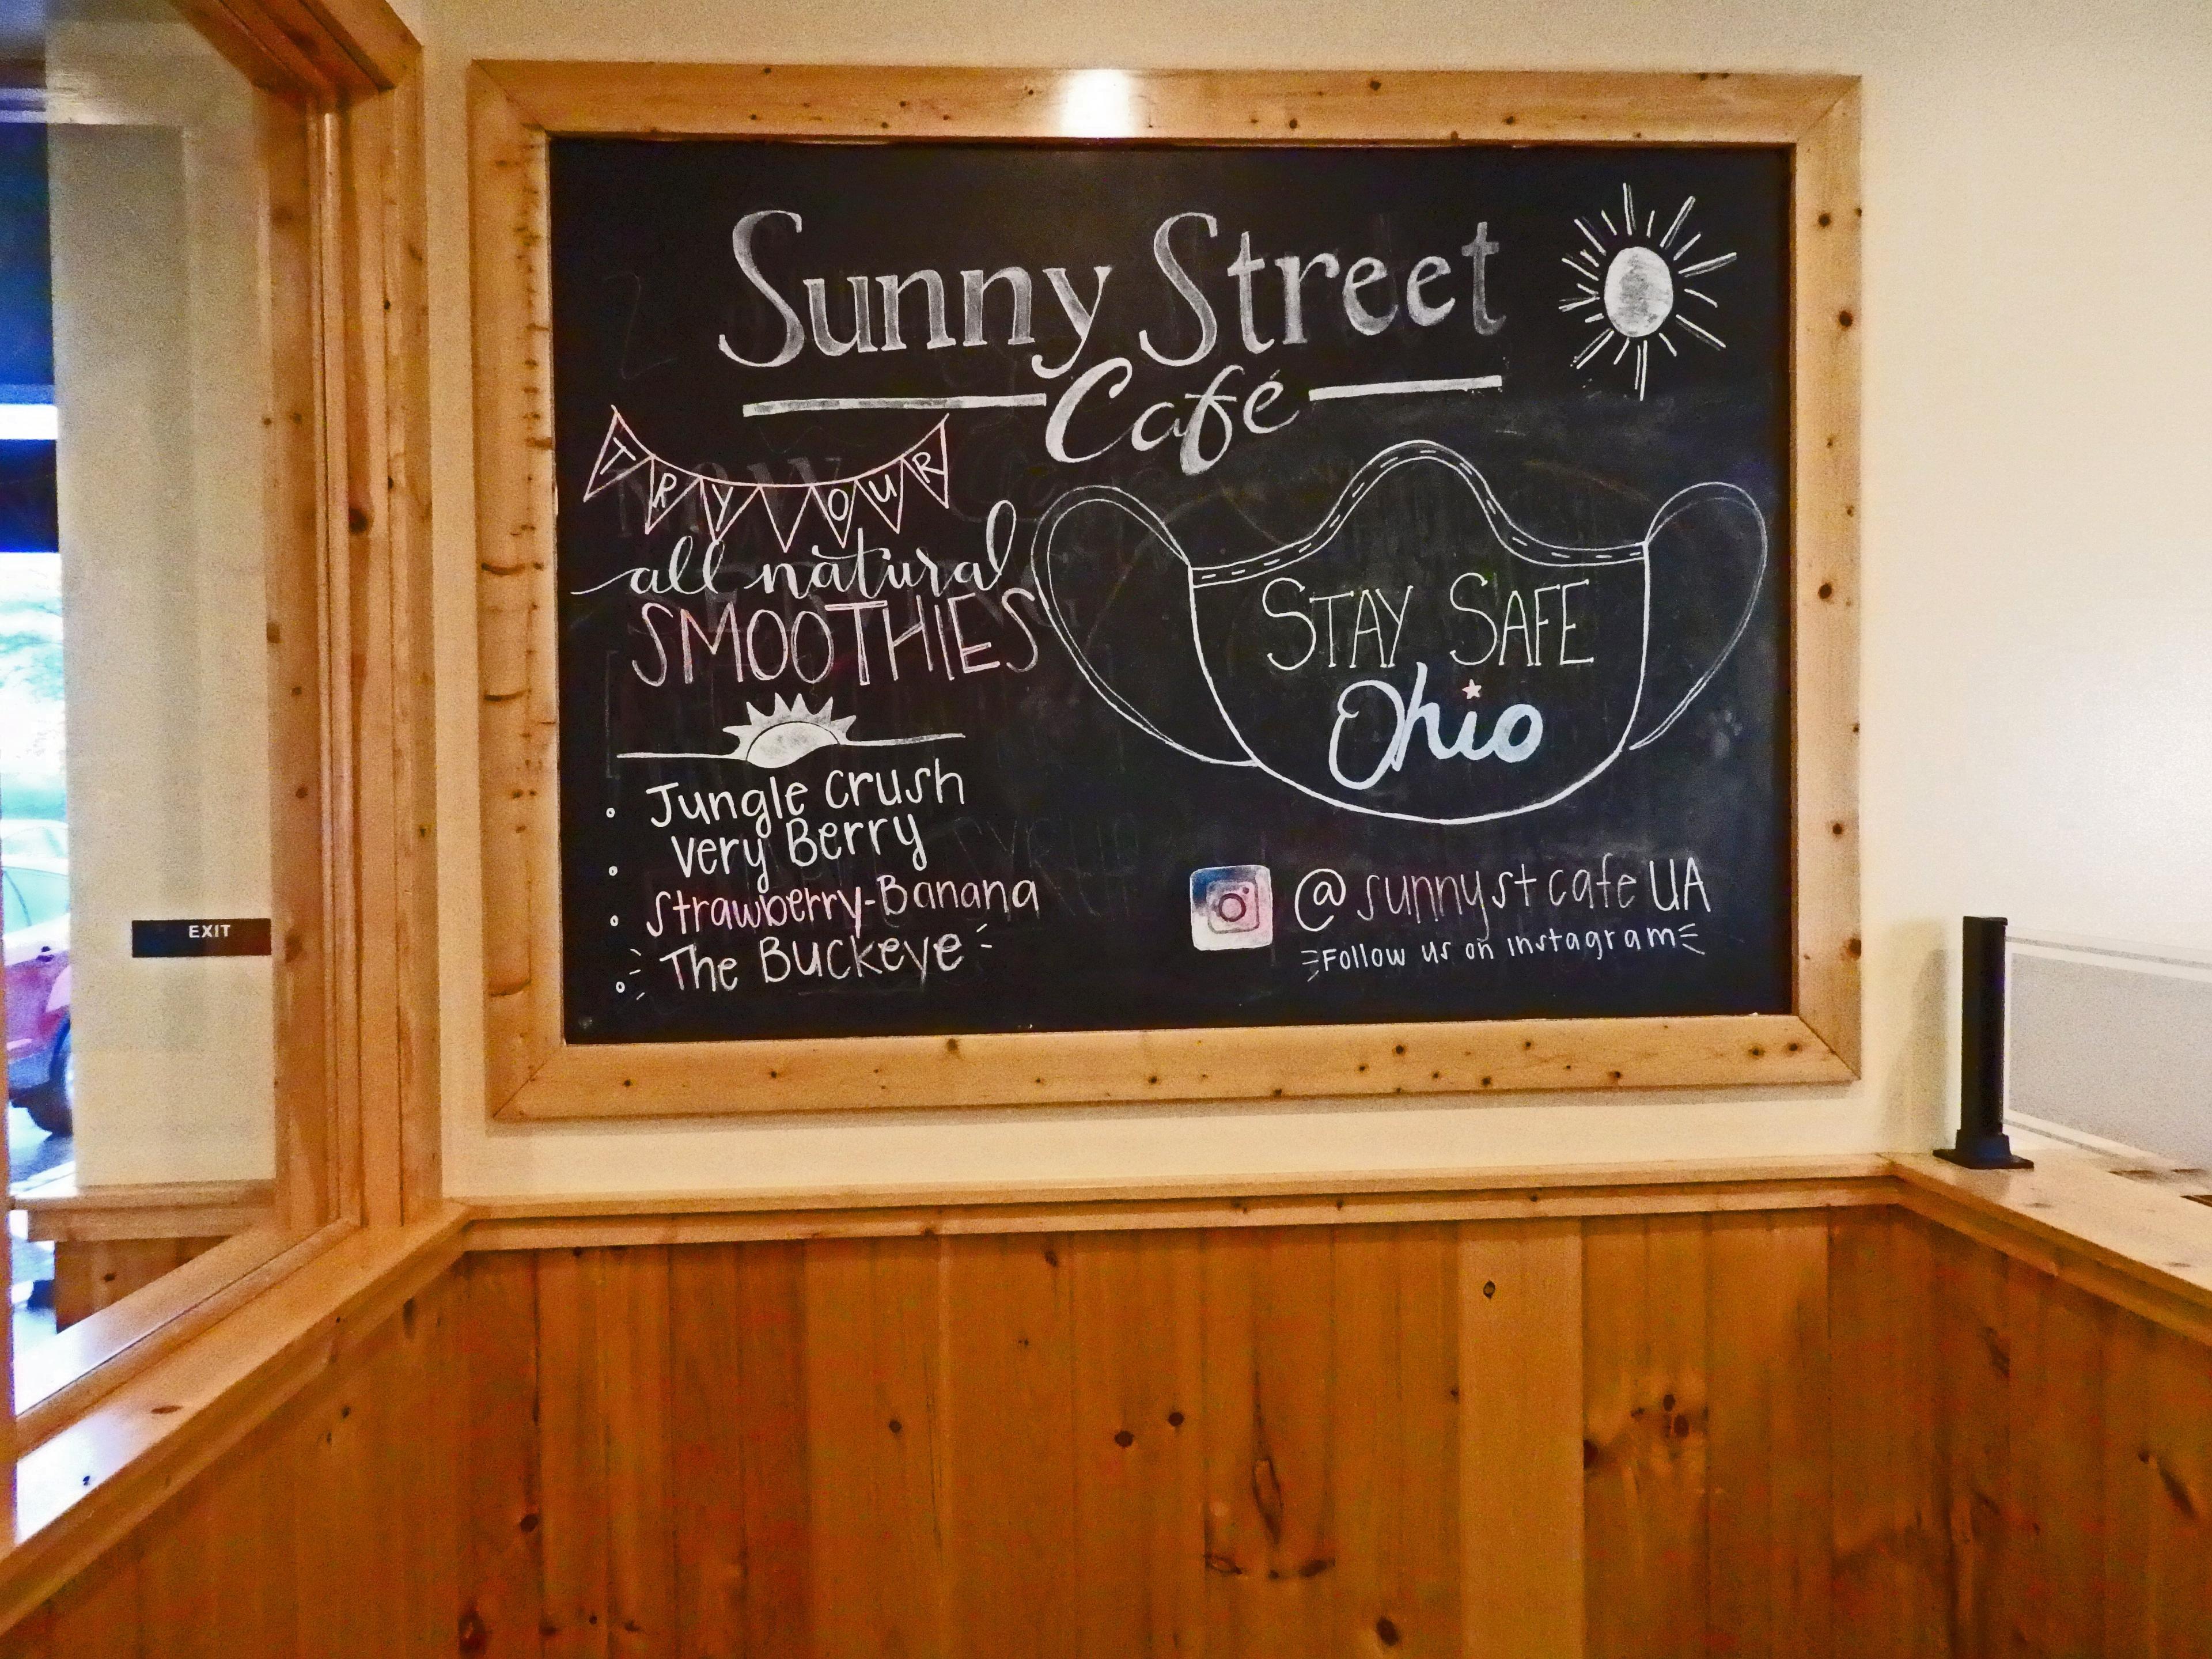 Sunny Street
Café
TRY OUR
all natural
SMOOTHIES
Jungle Crush
Very Berry
Strawberry-Banana
The Buckeye
STAY SAFE
Ohio
@sunnystcafeUA
Follow us on Instagram
EXIT